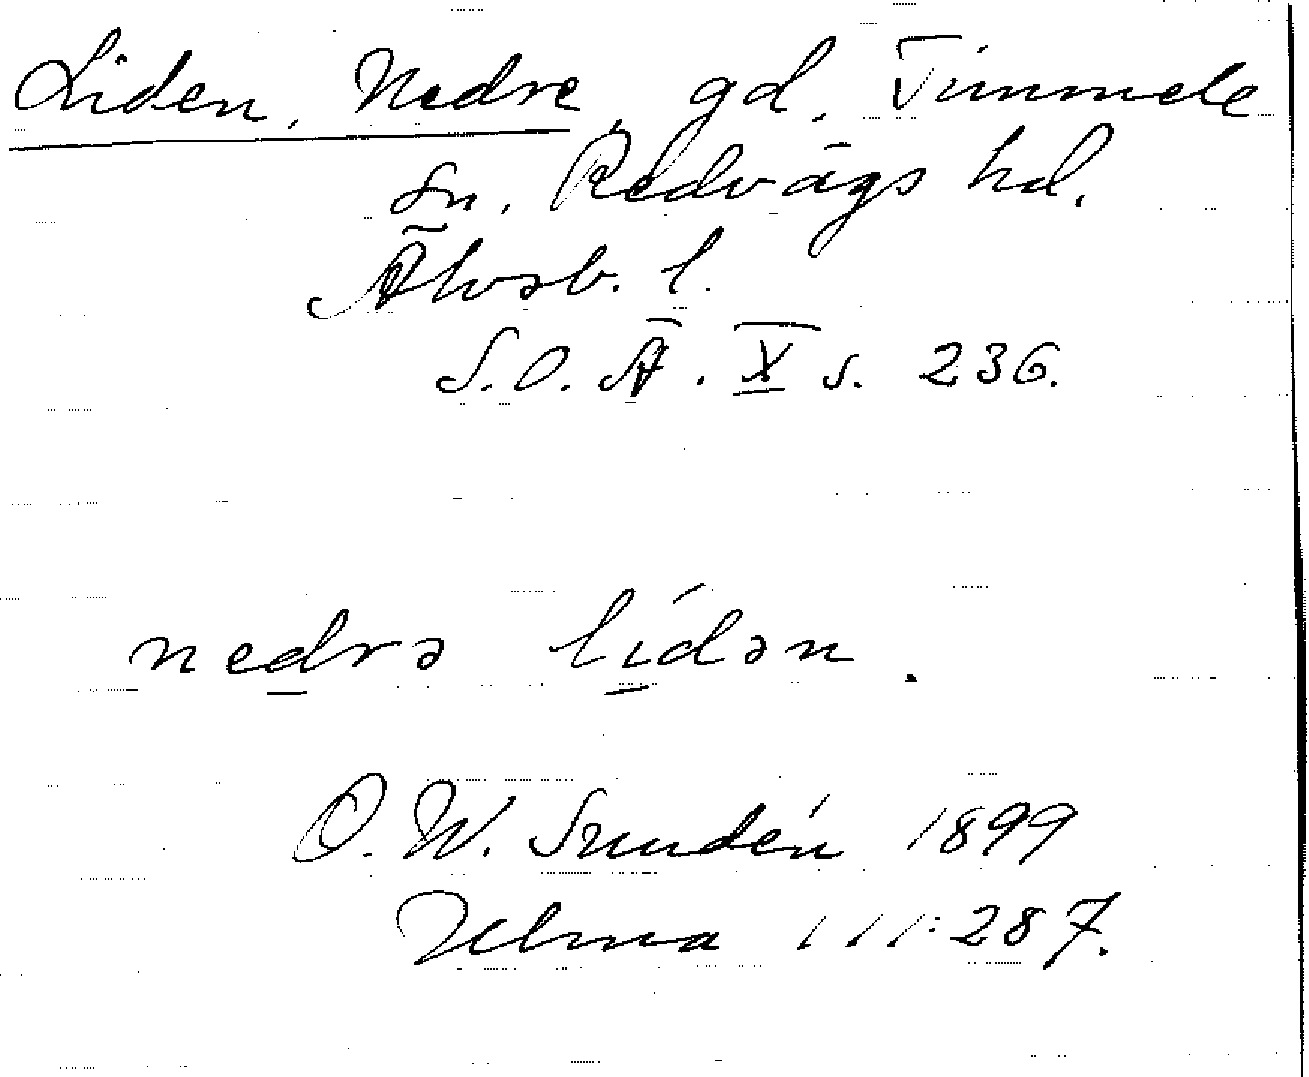 Liden, Nedre, gd, Timmele
sn, Redvägs hd.
Älvsb. l.
S.O.Ä. X s. 236.
nedrə lídən.
O. W. Sundén 1899
Uclma 111:287.